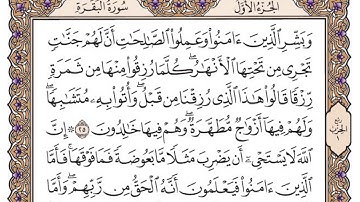 الجزء الأول سورة البقرة
وَبَشِّرِ الَّذِينَ ءَامَنُوا وَعَمِلُوا الصَّالِحَاتِ أَنَّ لَهُمْ جَنَّاتٍ
تَجْرِي مِن تَحْتِهَا الْأَنْهَارُ كُلَّمَا رُزِقُوا مِنْهَا مِن ثَمَرَةٍ
رِّزْقًا قَالُوا هَٰذَا الَّذِي رُزِقْنَا مِن قَبْلُ وَأُتُوا بِهِ مُتَشَابِهًا
وَلَهُمْ فِيهَا أَزْوَاجٌ مُّطَهَّرَةٌ وَهُمْ فِيهَا خَالِدُونَ ٢٥ إِنَّ
اللَّهَ لَا يَسْتَحْيِي أَن يَضْرِبَ مَثَلًا مَّا بَعُوضَةً فَمَا فَوْقَهَا فَأَمَّا
الَّذِينَ ءَامَنُوا فَيَعْلَمُونَ أَنَّهُ الْحَقُّ مِن رَّبِّهِمْ وَأَمَّا
ربع
الحزب
١